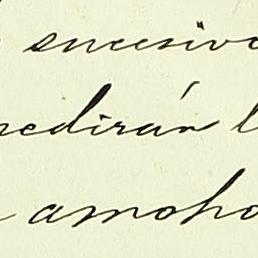 sucesivo
pedirán l
amoho